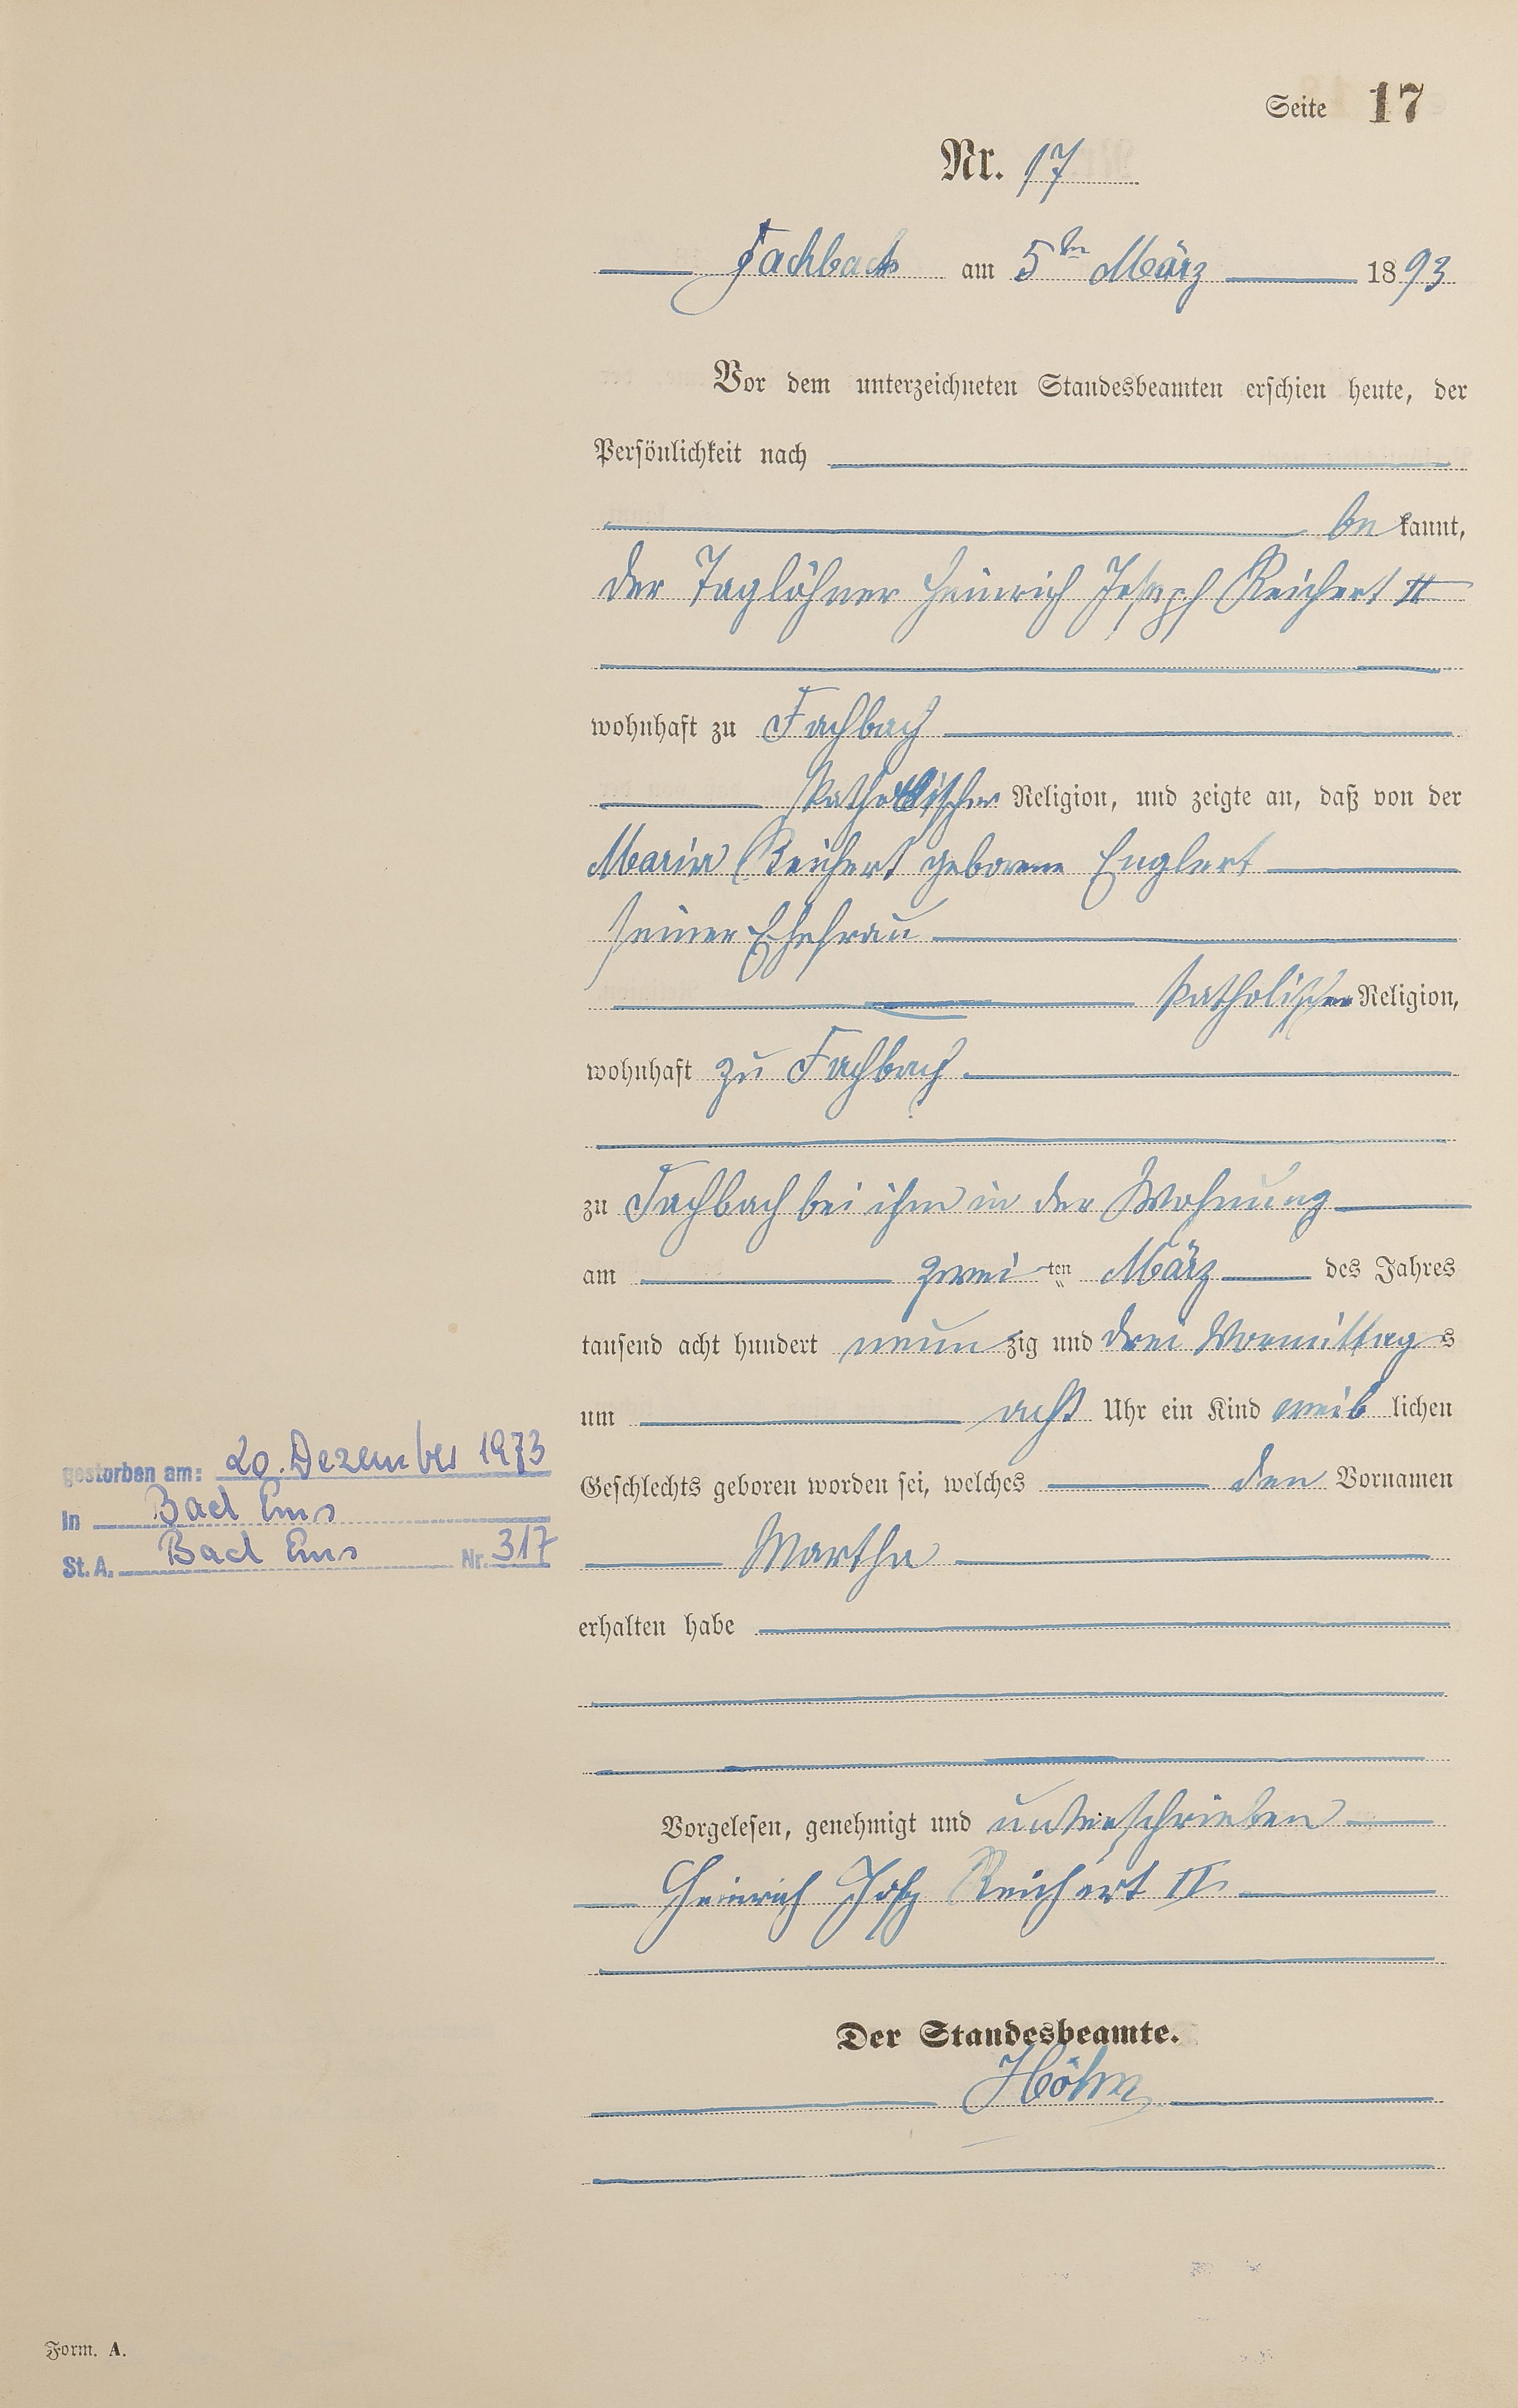 Seite 17
Nr. 17
Fachbach am 5ten März 1893
Vor dem unterzeichneten Standesbeamten erschien heute, der
Persönlichkeit nach
be kannt,
der Taglöhner Heinrich Joseph Reichert II
wohnhaft zu Fachbach
katholischer Religion, und zeigte an, daß von der
Maria Reichert geborene Englert
seiner Ehefrau
katholischer Religion,
wohnhaft zu Fachbach
zu Fachbach bei ihm in der Wohnung
am zwei ten März des Jahres
tausend acht hundert neun zig und drei Vormittag s
um acht Uhr ein Kind weib lichen
Geschlechts geboren worden sei, welches den Vornamen
Martha
erhalten habe
gestorben am: 20. Dezember 1973
In Bad Ems
St. A. Bad Ems Nr. 317
Vorgelesen, genehmigt und unterschrieben
Heinrich Josep Reichert II
Der Standesbeamte.
Höhn
Form. A.